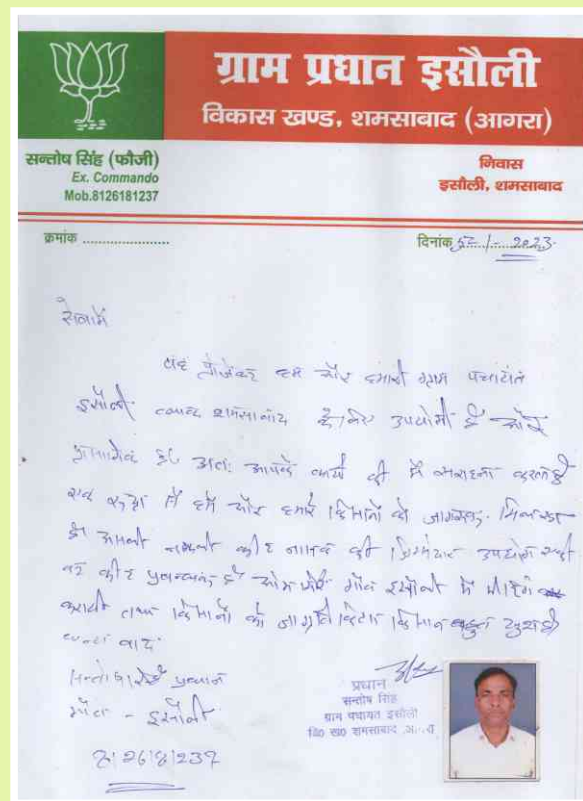 ग्राम प्रधान इसौली
विकास खण्ड, शमसाबाद (आगरा)
सन्तोष सिंह (फौजी)
Ex. Commando
Mob.8126181237
निवास
इसौली, शमसाबाद
क्रमांक ......................
दिनांक 5-1-2023
सेवामें
यह प्रोजेक्ट हम और हमारी ग्राम पंचायत
इसौली ब्लाक शमसाबाद के लिए उपयोगी है और
अतः आपके कार्य की मैं सराहना करता हूँ
हमें और हमारे किसानों को जागरूक
असली नकली कीट नाशक की जिम्मेदार उपयोग
कीट प्रबन्धन गाँव इसौली में मीटिंग
कराली तथा किसानों को जागृति किया किसान बहुत खुश है
धन्यवाद
सन्तोष सिंह प्रधान
गाँव - इसौली
8126181237
प्रधान
सन्तोष सिंह
ग्राम पंचायत इसौली
वि0 ख0 शमसाबाद